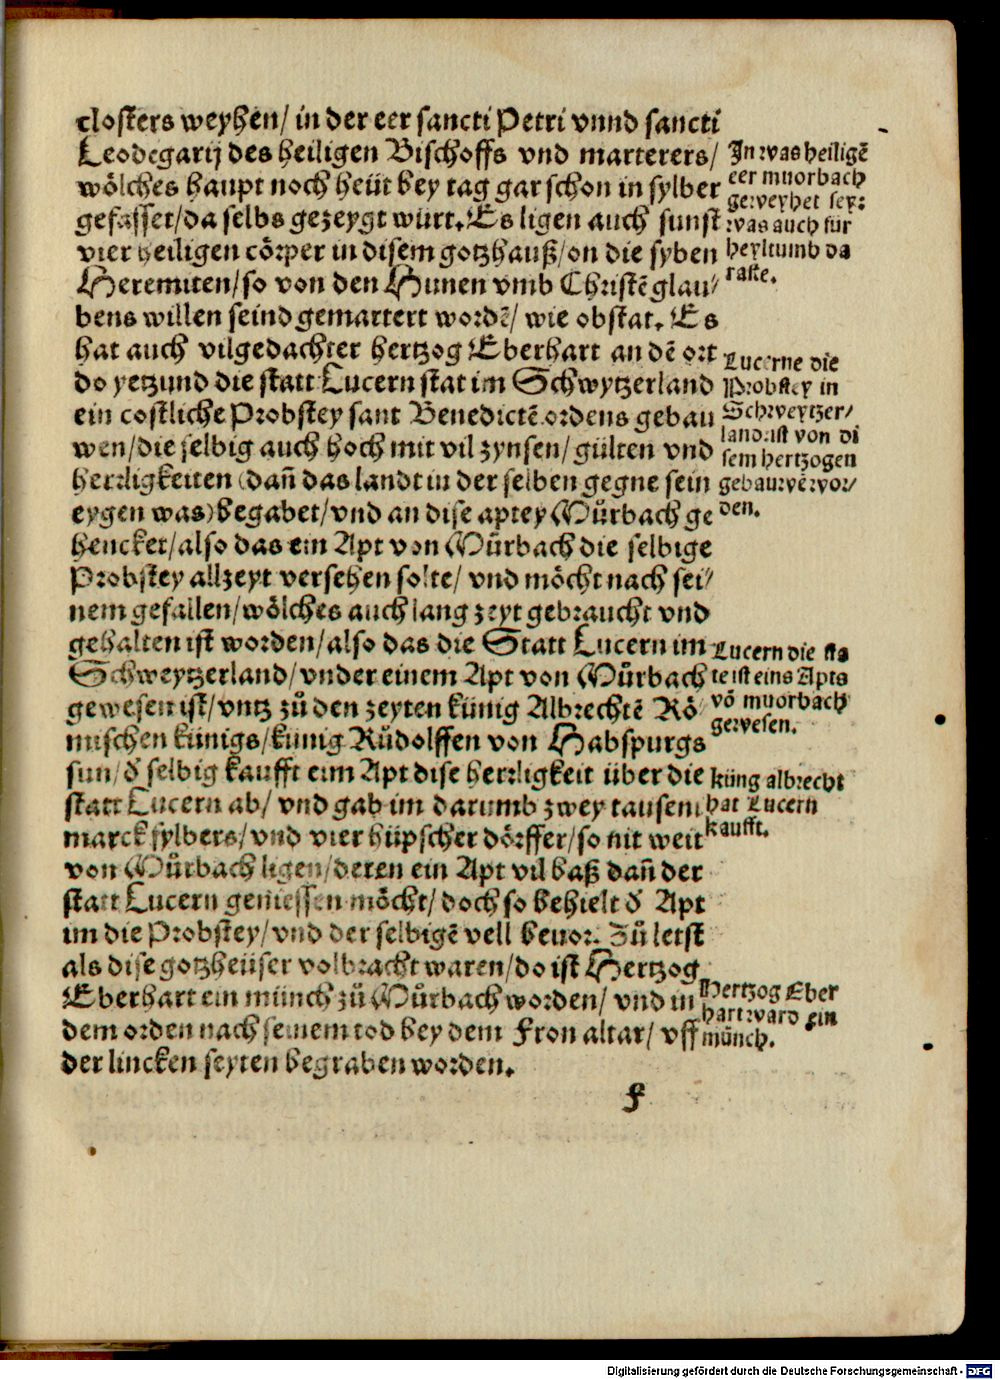 closters weyhen/ in der eer sancti Petri vnnd sancti
Leodegarij des heiligen Bischoffs vnd marterers/
wölches haupt noch heüt bey tag gar schon in sylber
gefasset/da selbs gezeygt würt. Es ligen auch sunst
vier heiligen cörper in disem gotzhauß/on die syben
Heremiten/so von den Hunen vmb Christē glau/
bens willen seind gemartert wordē/ wie obstat. Es
hat auch vilgedachter hertzog Eberhart an dē ort
do yetzund die statt Lucern stat im Schwytzerland
ein costliche Probstey sant Benedictē ordens gebau
wen/die selbig auch hoch mit vil zynsen/gülten vnd
herrligkeiten (dañ das landt in der selben gegne sein
eygen was) begabet/vnd an dise aptey Můrbach ge
hencket/also das ein Apt von Můrbach die selbige
Probstey allzeyt versehen solte/ vnd möcht nach sei/
nem gefallen/wölches auch lang zeyt gebraucht vnd
gehalten ist worden/also das die Statt Lucern im
Schweytzerland/vnder einem Apt von Můrbach
gewesen ist/vntz zů den zeyten künig Albrechtē Rö
mischen künigs/künig Růdolffen von Habspurgs
sun/ď selbig kaufft eim Apt dise herrligkeit über die
statt Lucern ab/ vnd gab im darumb zwey tausent
marck sylbers/vnd vier hüpscher dörffer/so nit weit
von Můrbach ligen/deren ein Apt vil baß dañ der
statt Lucern geniessen möcht/doch so behielt ď Apt
im die Probstey/vnd der selbigē vell beuor. Zů letst
als dise gotzheüser volbracht waren/do ist Hertzog
Eberhart ein münch zů Můrbach worden/ vnd in
dem orden nach seinem tod bey dem Fron altar/ vff
der lincken seyten begraben worden.
F
In was heiligē
eer muorbach
geweyhet sey:
was auch für
heyltumb da
raste.
Lucerne die
Probstey in
Schweytzer/
land ist von di
sem hertzogen
gebauwē wor/
den.
Lucern die sta
te ist eins Apts
vō muorbach
gewesen.
küng albrecht
hat Lucern
kaufft.
Hertzog Eber
hart ward ein
münch.
Digitalisierung gefördert durch die Deutsche Forschungsgemeinschaft - DFG